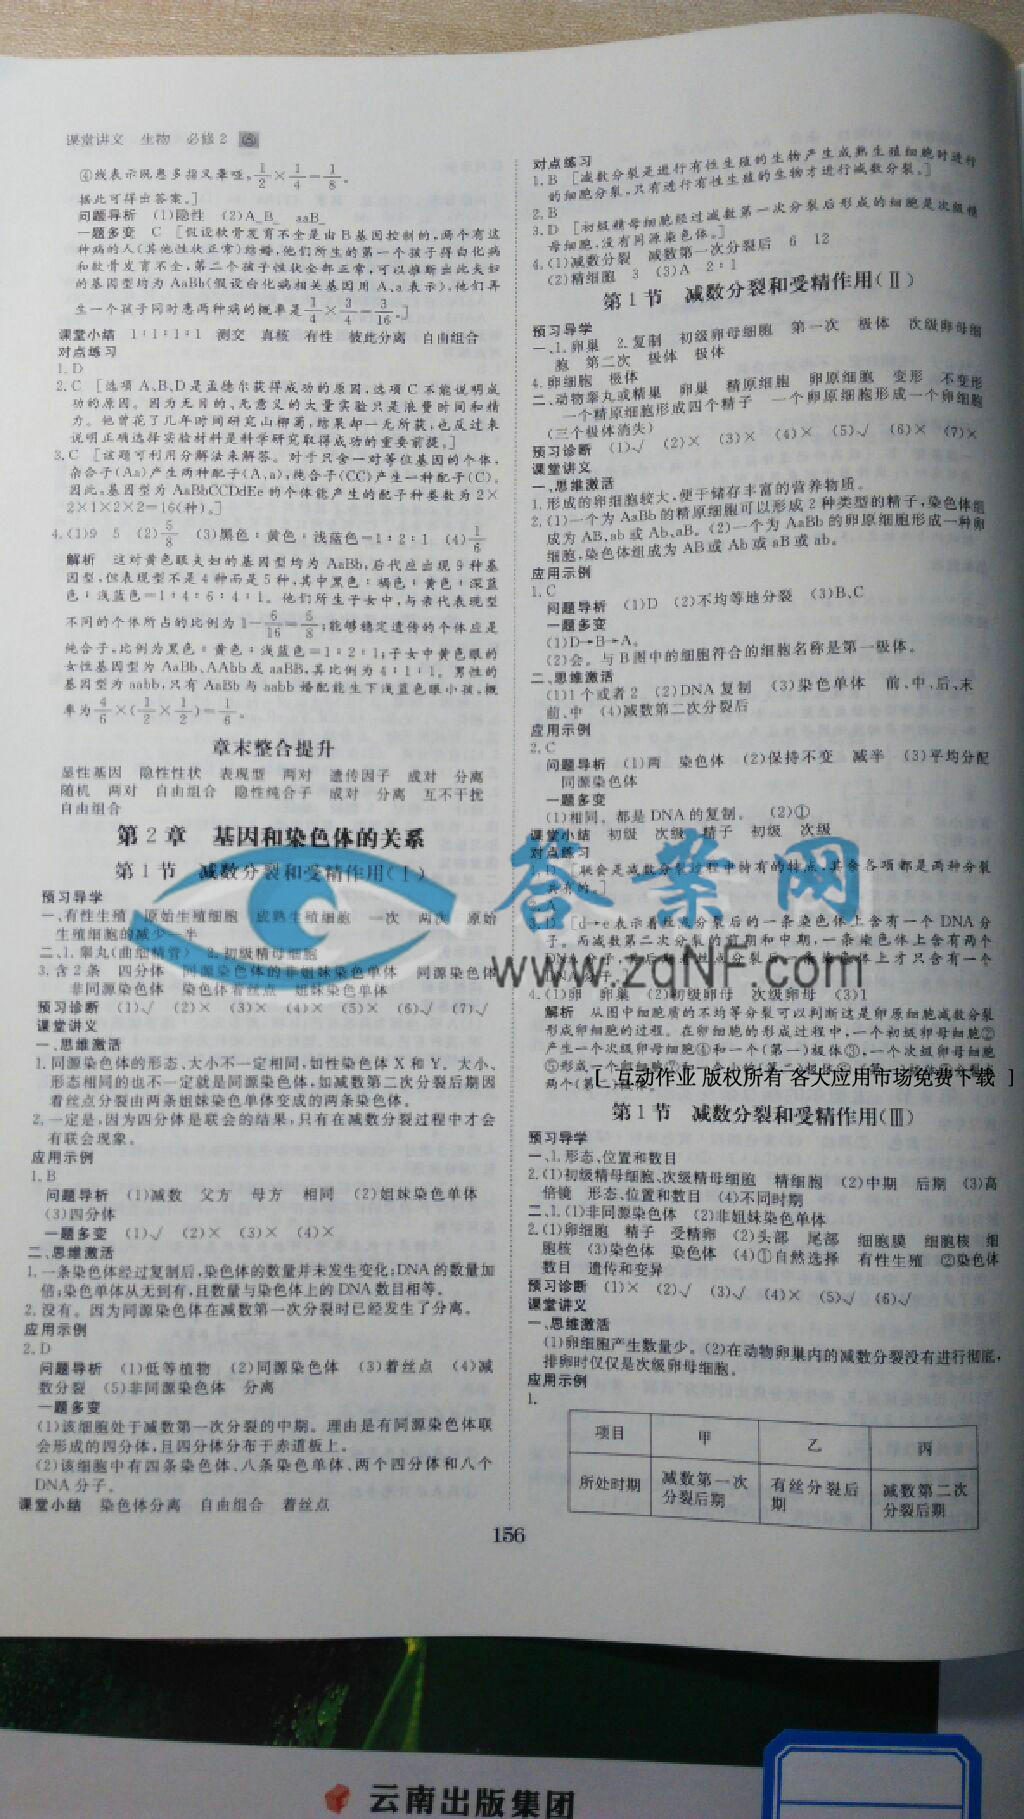 课堂讲义 生物 必修2
④线表示既患多指又聋哑,1/2×1/4=1/8。
据此可得出答案。]
问题导析 (1)隐性 (2)A_B_ aaB_
一题多变 C [假设软骨发育不全是由B基因控制的,两个有这
种病的人(其他性状正常)结婚,他们所生的第一个孩子得白化病
和软骨发育不全,第二个孩子性状全部正常,可以推断出此夫妇
的基因型均为AaBb(假设白化病相关基因用A、a表示),他们再
生一个孩子同时患两种病的概率是1/4×3/4=3/16。]
课堂小结 1∶1∶1∶1 测交 真核 有性 彼此分离 自由组合
对点练习
1.D
2.C [选项A、B、D是孟德尔获得成功的原因,选项C不能说明成
功的原因。因为无目的、无意义的大量实验只是浪费时间和精
力。他曾花了几年时间研究山柳菊,结果却一无所获,也反过来
说明正确选择实验材料是科学研究取得成功的重要前提。]
3.C [该题可利用分解法来解答。对于只含一对等位基因的个体,
杂合子(Aa)产生两种配子(A、a),纯合子(CC)产生一种配子(C)。
因此,基因型为AaBbCCDdEe的个体能产生的配子种类数为2×
2×1×2×2=16(种)。]
4.(1)9 5 (2)5/8 (3)黑色∶黄色∶浅蓝色=1∶2∶1 (4)1/6
解析 这对黄色眼夫妇的基因型均为AaBb,后代应出现9种基
因型,但表现型不是4种而是5种,其中黑色∶褐色∶黄色∶深蓝
色∶浅蓝色=1∶4∶6∶4∶1。他们所生子女中,与亲代表现型
不同的个体所占的比例为1-6/16=5/8;能够稳定遗传的个体应是
纯合子,比例为黑色∶黄色∶浅蓝色=1∶2∶1;子女中黄色眼的
女性基因型为AaBb、AAbb或aaBB,其比例为4∶1∶1。男性的
基因型为aabb,只有AaBb与aabb婚配能生下浅蓝色眼小孩,概
率为4/6×(1/2×1/2)=1/6。
章末整合提升
显性基因 隐性性状 表现型 两对 遗传因子 成对 分离
随机 两对 自由组合 隐性纯合子 成对 分离 互不干扰
自由组合
第2章 基因和染色体的关系
第1节 减数分裂和受精作用(Ⅰ)
预习导学
一、有性生殖 原始生殖细胞 成熟生殖细胞 一次 两次 原始
生殖细胞的减少一半
二、1.睾丸(曲细精管) 2.初级精母细胞
3.含2条 四分体 同源染色体的非姐妹染色单体 同源染色体
非同源染色体 染色体着丝点 姐妹染色单体
预习诊断 (1)√ (2)× (3)× (4)× (5)√ (6)√ (7)√
课堂讲义
一、思维激活
1.同源染色体的形态、大小不一定相同,如性染色体X和Y。大小、
形态相同的也不一定就是同源染色体,如减数第二次分裂后期因
着丝点分裂由两条姐妹染色单体变成的两条染色体。
2.一定是,因为四分体是联会的结果,只有在减数分裂过程中才会
有联会现象。
应用示例
1.B
问题导析 (1)减数 父方 母方 相同 (2)姐妹染色单体
(3)四分体
一题多变 (1)√ (2)× (3)× (4)×
二、思维激活
1.一条染色体经过复制后,染色体的数量并未发生变化;DNA的数量加
倍;染色单体从无到有,且数量与染色体上的DNA数目相等。
2.没有。因为同源染色体在减数第一次分裂时已经发生了分离。
应用示例
2.D
问题导析 (1)低等植物 (2)同源染色体 (3)着丝点 (4)减
数分裂 (5)非同源染色体 分离
一题多变
(1)该细胞处于减数第一次分裂的中期。理由是有同源染色体联
会形成的四分体,且四分体分布于赤道板上。
(2)该细胞中有四条染色体、八条染色单体、两个四分体和八个
DNA分子。
课堂小结 染色体分离 自由组合 着丝点
对点练习
1.B [减数分裂是进行有性生殖的生物产生成熟生殖细胞时进行
的细胞分裂,只有进行有性生殖的生物才进行减数分裂。]
2.B
3.D [初级精母细胞经过减数第一次分裂后形成的细胞是次级精
母细胞,没有同源染色体。]
4.(1)减数分裂 减数第一次分裂后 6 12
(2)精细胞 3 (3)A 2∶1
第1节 减数分裂和受精作用(Ⅱ)
预习导学
一、1.卵巢 2.复制 初级卵母细胞 第一次 极体 次级卵母细
胞 第二次 极体 极体
4.卵细胞 极体
二、动物睾丸或精巢 卵巢 精原细胞 卵原细胞 变形 不变形
一个精原细胞形成四个精子 一个卵原细胞形成一个卵细胞
(三个极体消失)
预习诊断 (1)√ (2)× (3)× (4)× (5)√ (6)× (7)×
课堂讲义
一、思维激活
1.形成的卵细胞较大,便于储存丰富的营养物质。
2.(1)一个为AaBb的精原细胞可以形成2种类型的精子,染色体组
成为AB、ab或Ab、aB。(2)一个为AaBb的卵原细胞形成一种卵
细胞,染色体组成为AB或Ab或aB或ab。
应用示例
1.C
问题导析 (1)D (2)不均等地分裂 (3)B、C
一题多变
(1)D→B→A。
(2)会。与B图中的细胞符合的细胞名称是第一极体。
二、思维激活
(1)1个或者2 (2)DNA复制 (3)染色单体 前、中、后、末
前、中 (4)减数第二次分裂后
应用示例
2.C
问题导析 (1)两 染色体 (2)保持不变 减半 (3)平均分配
同源染色体
一题多变
(1)相同。都是DNA的复制。 (2)①
课堂小结 初级 次级 精子 初级 次级
对点练习
1.D [联会是减数分裂过程中特有的特点,其余各项都是两种分裂
共有的。]
2.A
3.D [d→e表示着丝点分裂后的一条染色体上含有一个DNA分
子。而减数第二次分裂的前期和中期,一条染色体上含有两个
DNA分子,
4.(1)卵 卵巢 (2)初级卵母 次级卵母 (3)1
解析 从图中细胞质的不均等分裂可以判断这是卵原细胞减数分裂
形成卵细胞的过程。在卵细胞的形成过程中,一个初级卵母细胞②
产生一个次级卵母细胞④和一个(第一)极体③,一个次级卵母细胞
答案网
www.zqNF.com
[ 互动作业 版权所有 各大应用市场免费下载 ]
第1节 减数分裂和受精作用(Ⅲ)
预习导学
一、1.形态、位置和数目
2.(1)初级精母细胞、次级精母细胞 精细胞 (2)中期 后期 (3)高
倍镜 形态、位置和数目 (4)不同时期
二、1.(1)非同源染色体 (2)非姐妹染色单体
2.(1)卵细胞 精子 受精卵 (2)头部 尾部 细胞膜 细胞核 细
胞核 (3)染色体 染色体 (4)①自然选择 有性生殖 ②染色体
数目 遗传和变异
预习诊断 (1)× (2)√ (3)√ (4)× (5)√ (6)√
课堂讲义
一、思维激活
(1)卵细胞产生数量少。(2)在动物卵巢内的减数分裂没有进行彻底,
排卵时仅仅是次级卵母细胞。
应用示例
1.
项目 甲 乙 丙
所处时期 减数第一次分裂后期 有丝分裂后期 减数第二次分裂后期
156
云南出版集团